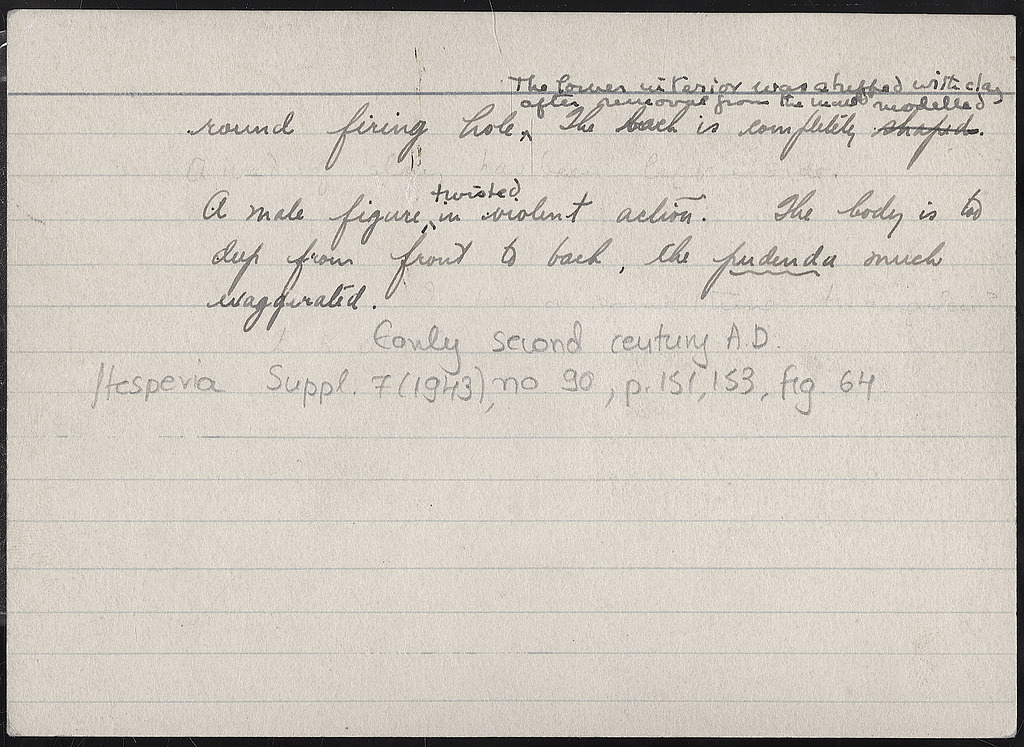 The lower interior was stuffed with clay
after removal from the mould modelled
round firing hole. The back is completely shaped.
twisted
A male figure, in violent action. The body is too
deep from front to back, the pudenda much
exaggerated.
Early second century A.D.
Hesperia Suppl. 7 (1943), no 90, p. 151, 153, fig 64